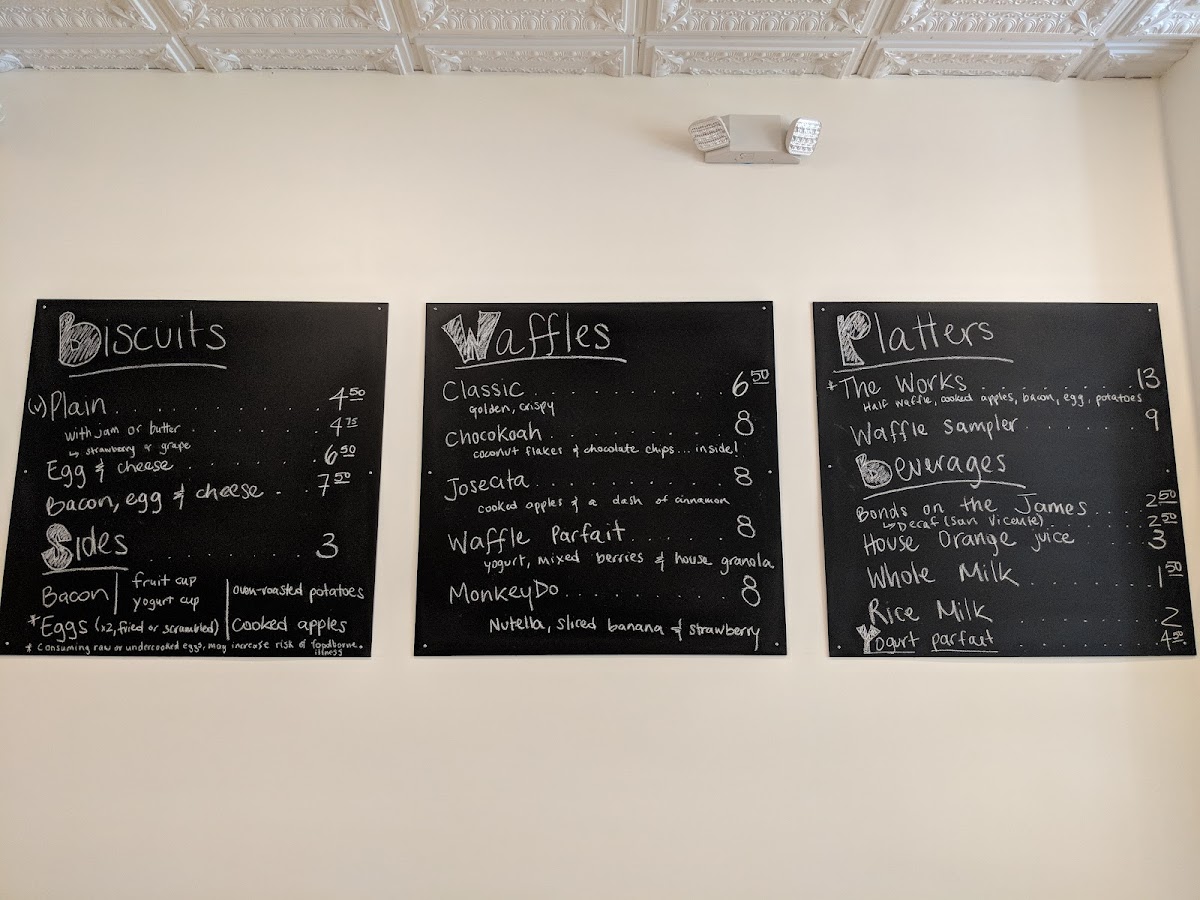 Biscuits
(v) Plain 4.50
with jam or butter 4.75
↳ strawberry or grape
Egg & cheese 6.50
Bacon, egg & cheese 7.50
Sides 3
Bacon
fruit cup
yogurt cup
oven-roasted potatoes
*Eggs (x2, fried or scrambled)
Cooked apples
* Consuming raw or undercooked eggs, may increase risk of foodborne
illness
Waffles
Classic 6.50
golden, crispy
Chockoah 8
coconut flakes & chocolate chips... inside!
Josecita 8
cooked apples & a dash of cinnamon
Waffle Parfait 8
yogurt, mixed berries & house granola
MonkeyDo 8
Nutella, sliced banana & strawberry
Platters
*The Works 13
Half waffle, cooked apples, bacon, egg, potatoes
Waffle sampler 9
Beverages
Bonds on the James 2.50
↳ Decaf (San Vicente) 2.50
House Orange juice 3
Whole Milk 1.50
Rice Milk 2
Yogurt parfait 4.50